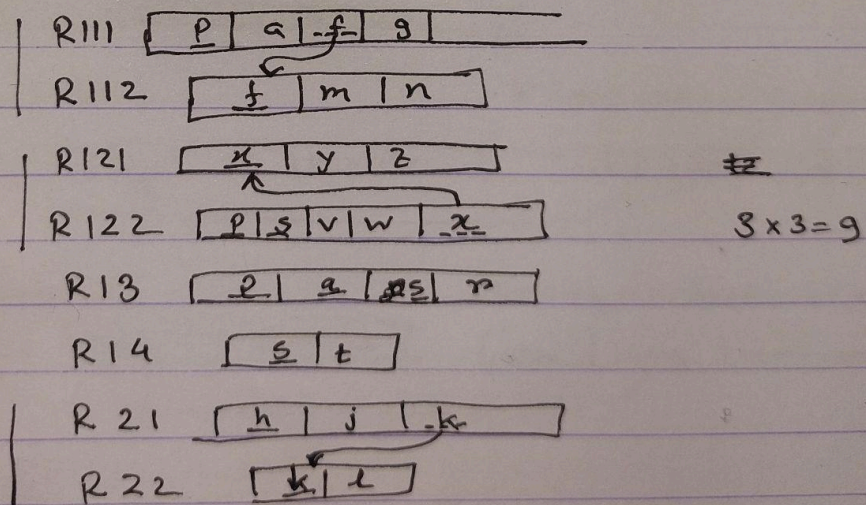 R111 p a f g
R112 f m n
R121 x y z
R122 p s v w x 3 x 3 = 9
R13 q s r
R14 s t
R 21 h j k
R 22 k l